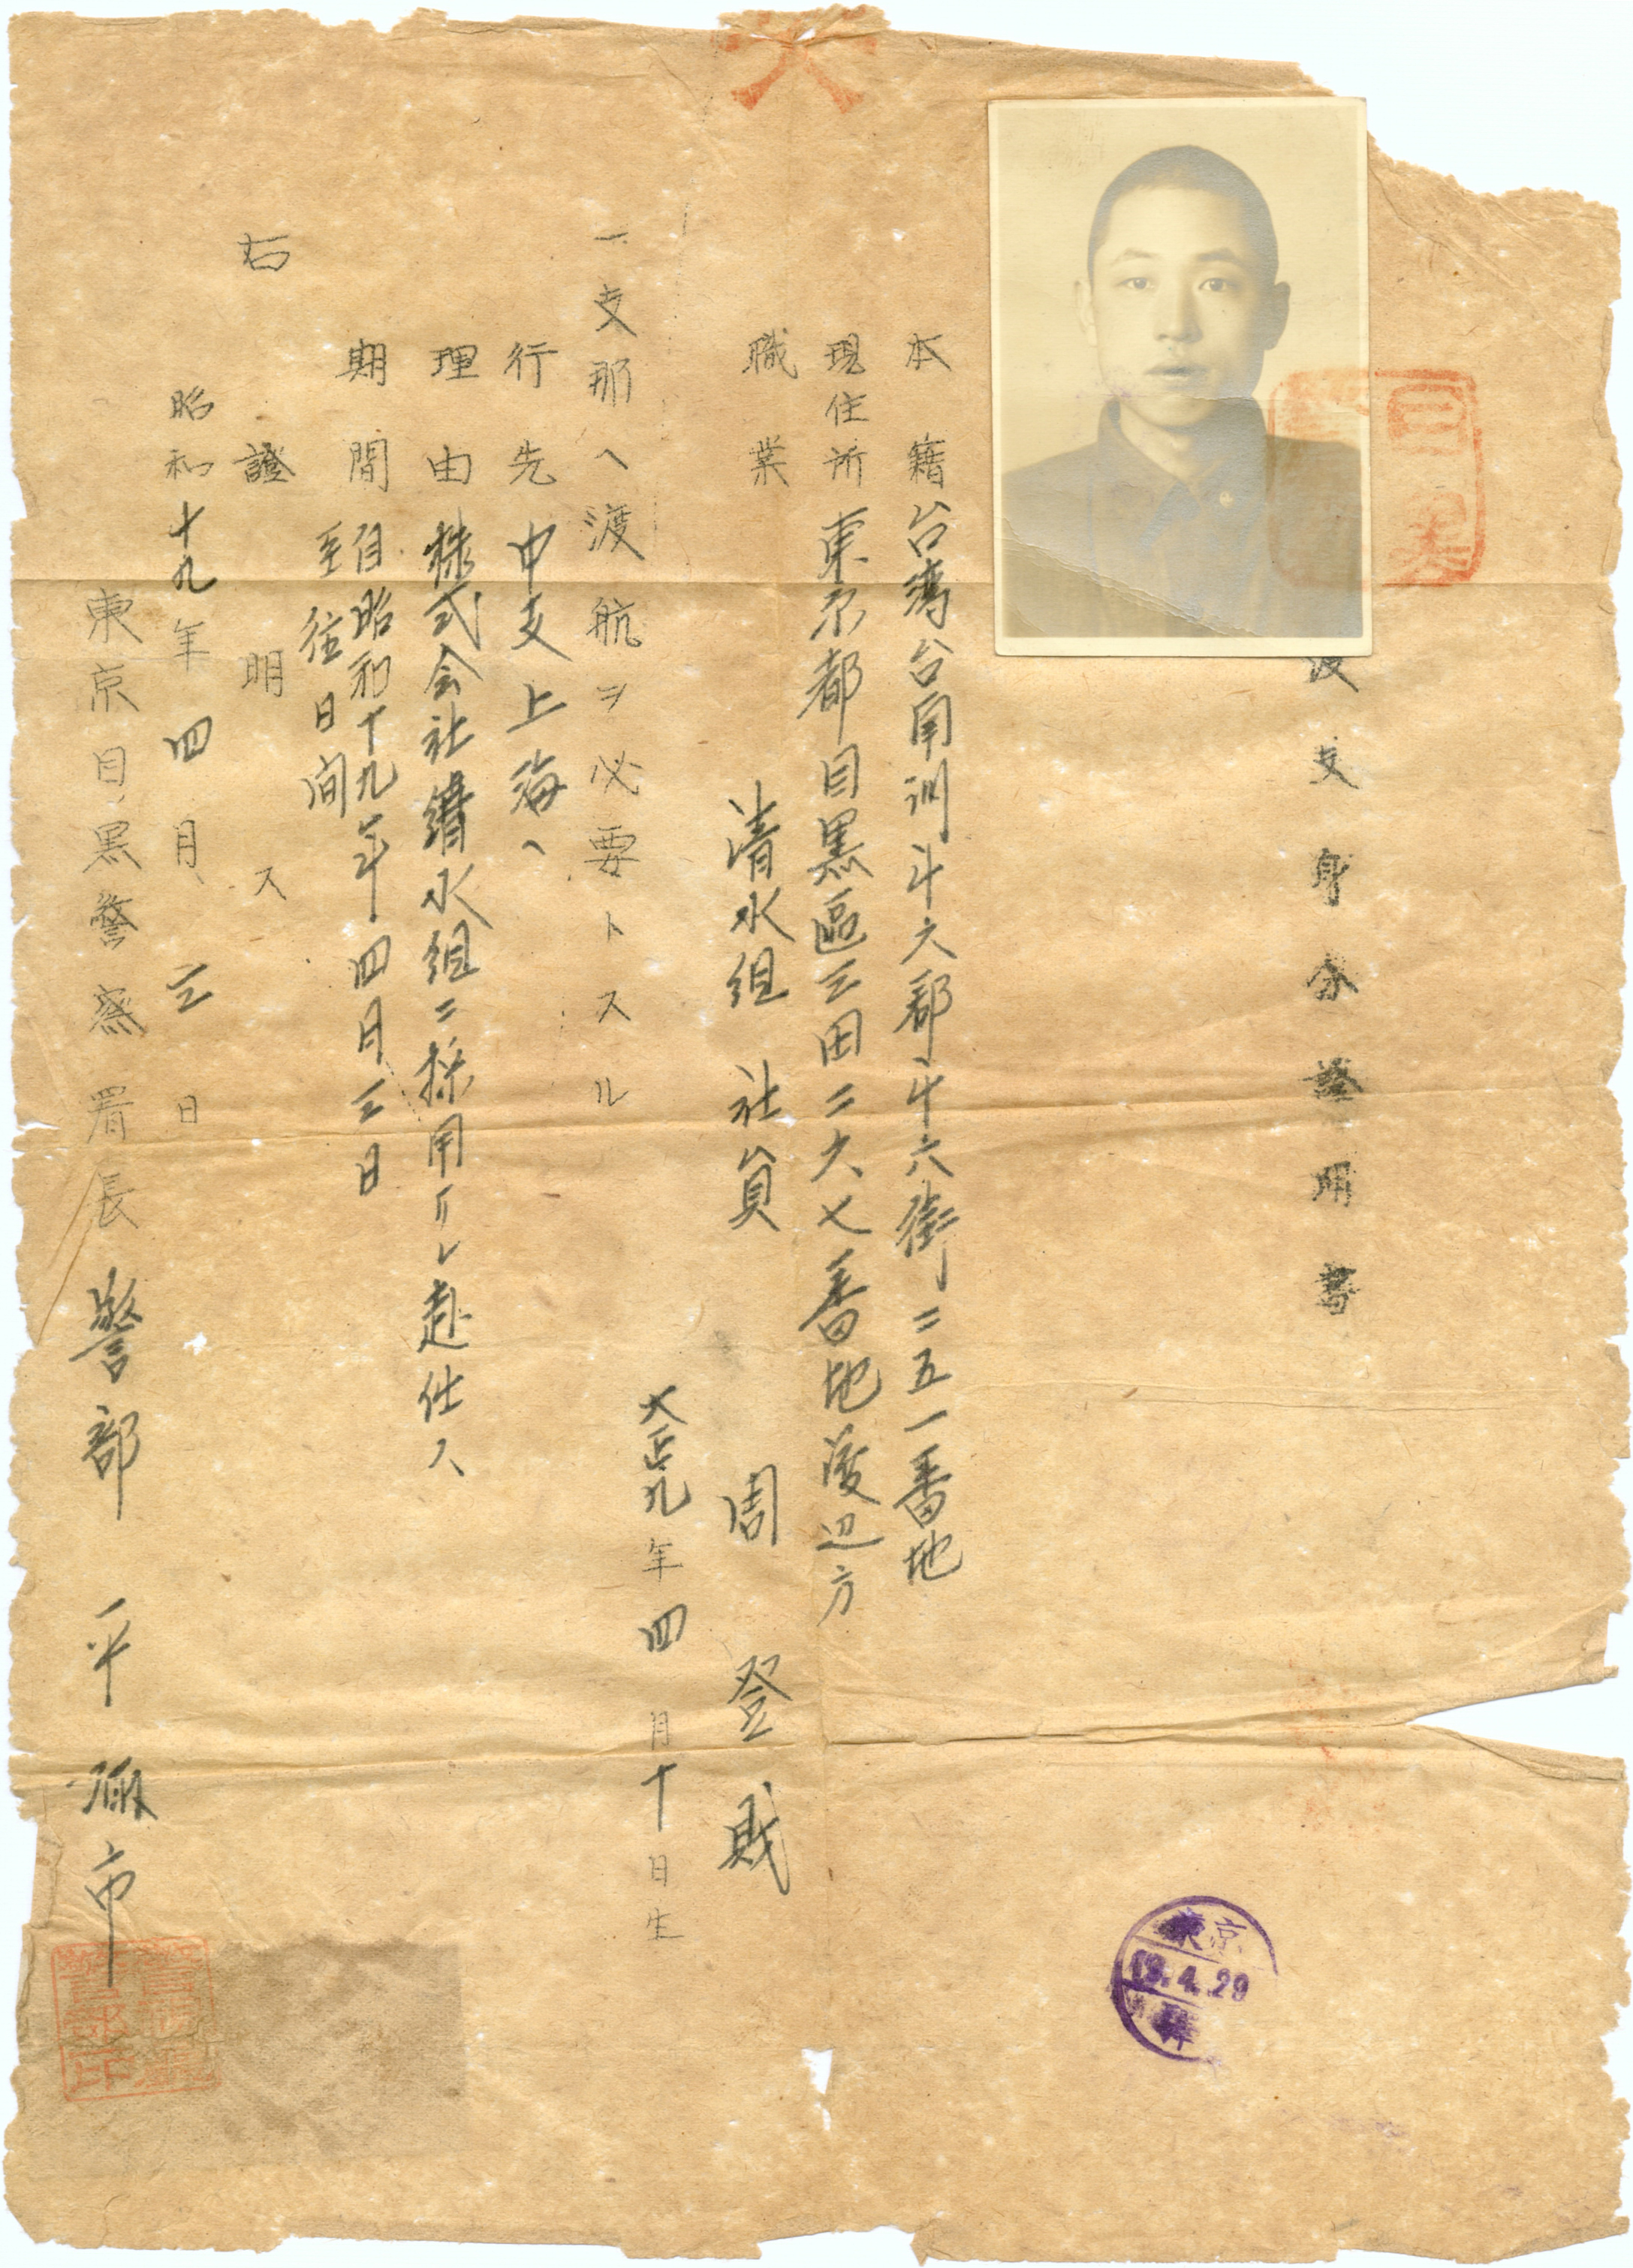 渡支身分證明書
本籍 台湾台南州斗六郡斗六街二五一番地
現住所 東京都目黒區三田二六七番地渡辺方
職業 清水組 社員
周登財
大正九年四月十日生
一支那ヘ渡航ヲ必要トスル
行先 中支上海ヘ
理由 株式会社清水組ニ採用サレ赴任ス
期間 自昭和十九年四月三日
至往日間
右證明ス
昭和十九年四月三日
東京目黒警察署長 警部 平
東京
19.4.29